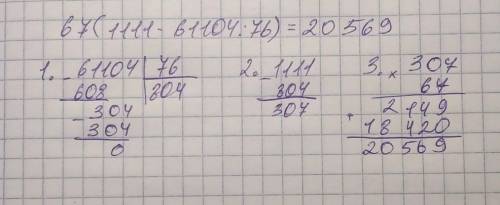 67(1111-61104:76)=20569
1. -61104 | 76
608 | 804
-304
304
0
2. -1111
804
307
3. × 307
67
2149
+
18420
20569